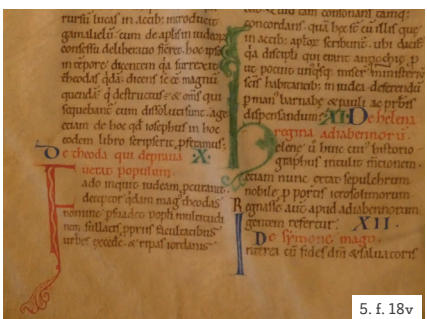 rursu lucas in actib; introducit
gamalielu. cum de aplis in iudeoru
consessu deliberatio fieret. hoc ipso
in tepore dicentem qa surrexerit
theodas qda. dicens se ee magnu
quenda. q destructus e & oms qui
sequebant eum dissoluti sunt. age
etiam de hoc qd iosephus in hoc
eodem libro scripserit pferamus.
De theoda qui deprava .X.
uerat populum.
Fado inquit iudeam pcurante.
deceptor qdam mag theodas
nomine psuadet popli multitudi
facultatibus
urbes excede. & ripas iordanis
concordans. qua hec sic cu illis que
in actib; aplor scribunt. ubi dicit
qa discipli qui erant antiochie. p
ut potuit unqsq; miser ministeriu
scis habitanti. in iudea. deferendu
p man barnabe & pauli ac pbris
dispensandum. XI. De helena
regina adiabennoru.
Helene u hui cui historio
graphus intulit mtionem.
etiam nunc extat sepulchrum
nobile. p portis ierosolimorum
Regnasse aut apud adiabennorum
gentem refertur. XII.
De symone mago.
Interea cu fides dni & saluatoris
5. f. 18v